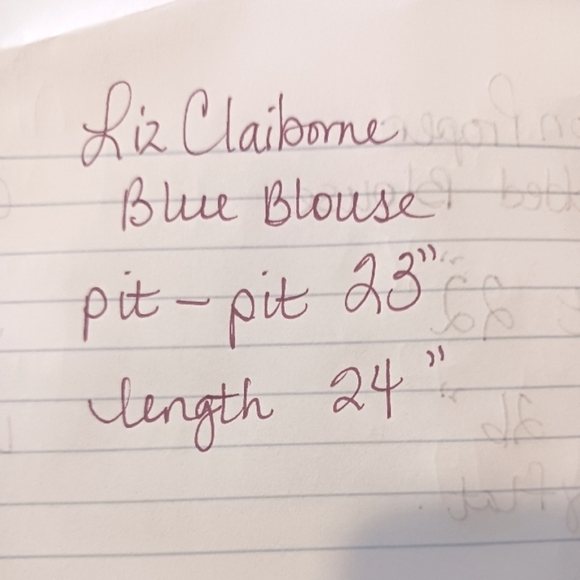 Liz Claiborne
Blue Blouse
pit - pit 23"
length 24"